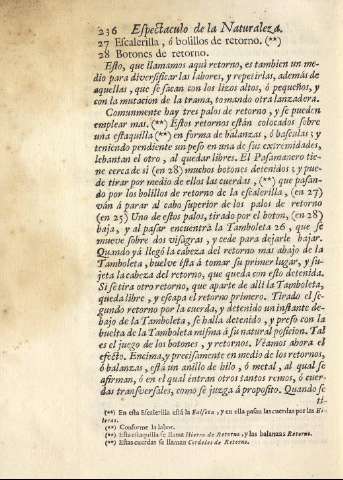 236 Espectaculo de la Naturaleza.
27 Escalerilla, ó bolillos de retorno. (**)
28 Botones de retorno.
Esto, que llamamos aqui retorno, es tambien un me-
dio para diversificar las labores, y repetirlas, además de
aquellas, que se sacan con los lizos altos, ó pequeños, y
con la mutacion de la trama, tomando otra lanzadera.
Comunmente hay tres palos de retorno, y se pueden
emplear mas. (**) Estos retornos están colocados sobre
una estaquilla (**) en forma de balanzas, ó basculas; y
teniendo pendiente un peso en una de sus extremidades,
lebantan el otro, al quedar libres. El Pasamanero tie-
ne cerca de sí (en 28) muchos botones detenidos; y pue-
de tirar por medio de ellos las cuerdas, (**) que pasan-
do por los bolillos de retorno de la escalerilla, (en 27)
ván á parar al cabo superior de los palos de retorno
(en 25) Uno de estos palos, tirado por el boton, (en 28)
baja, y al pasar encuentra la Tamboleta 26, que se
mueve sobre dos visagras, y cede para dejarle bajar.
Quando yá llegó la cabeza del retorno mas abajo de la
Tamboleta, buelve ésta á tomar su primer lugar, y su-
jeta la cabeza del retorno, que queda con esto detenida.
Si se tira otro retorno, que aparte de allí la Tamboleta,
queda libre, y escapa el retorno primero. Tirado el se-
gundo retorno por la cuerda, y detenido un instante de-
bajo de la Tamboleta, se halla detenido, y preso con la
buelta de la Tamboleta misma á su natural posicion. Tal
es el juego de los botones, y retornos. Véamos ahora el
efecto. Encima, y precisamente en medio de los retornos,
ó balanzas, está un anillo de hilo, ó metal, al qual se
afirman, ó en el qual entran otros tantos remos, ó cuer-
das transversales, como se juzga á proposito. Quando se
ti-
(**) En esta Escalerilla está la Falseta, y en ella pasan las cuerdas por las
(**) Conforme la labor.
(**) Esta estaquilla se llama Hierro de Retorno, y las balanzas Retorno.
(**) Estas cuerdas se llaman Cordeles de Retorno.